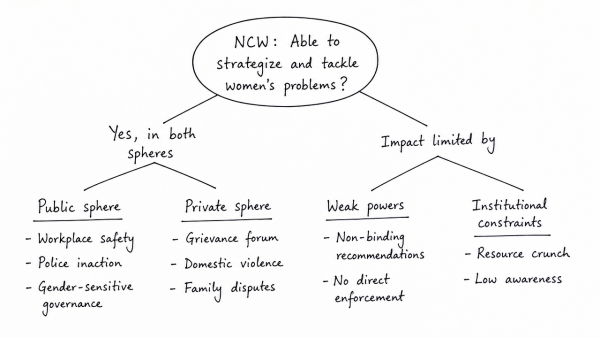 NCW: Able to
strategize and tackle
women's problems?
Yes, in both
spheres
Impact limited by
Public sphere
- Workplace safety
- Police inaction
- Gender-sensitive
governance
Private sphere
- Grievance forum
- Domestic violence
- Family disputes
Weak powers
- Non-binding
recommendations
- No direct
enforcement
Institutional
constraints
- Resource crunch
- Low awareness